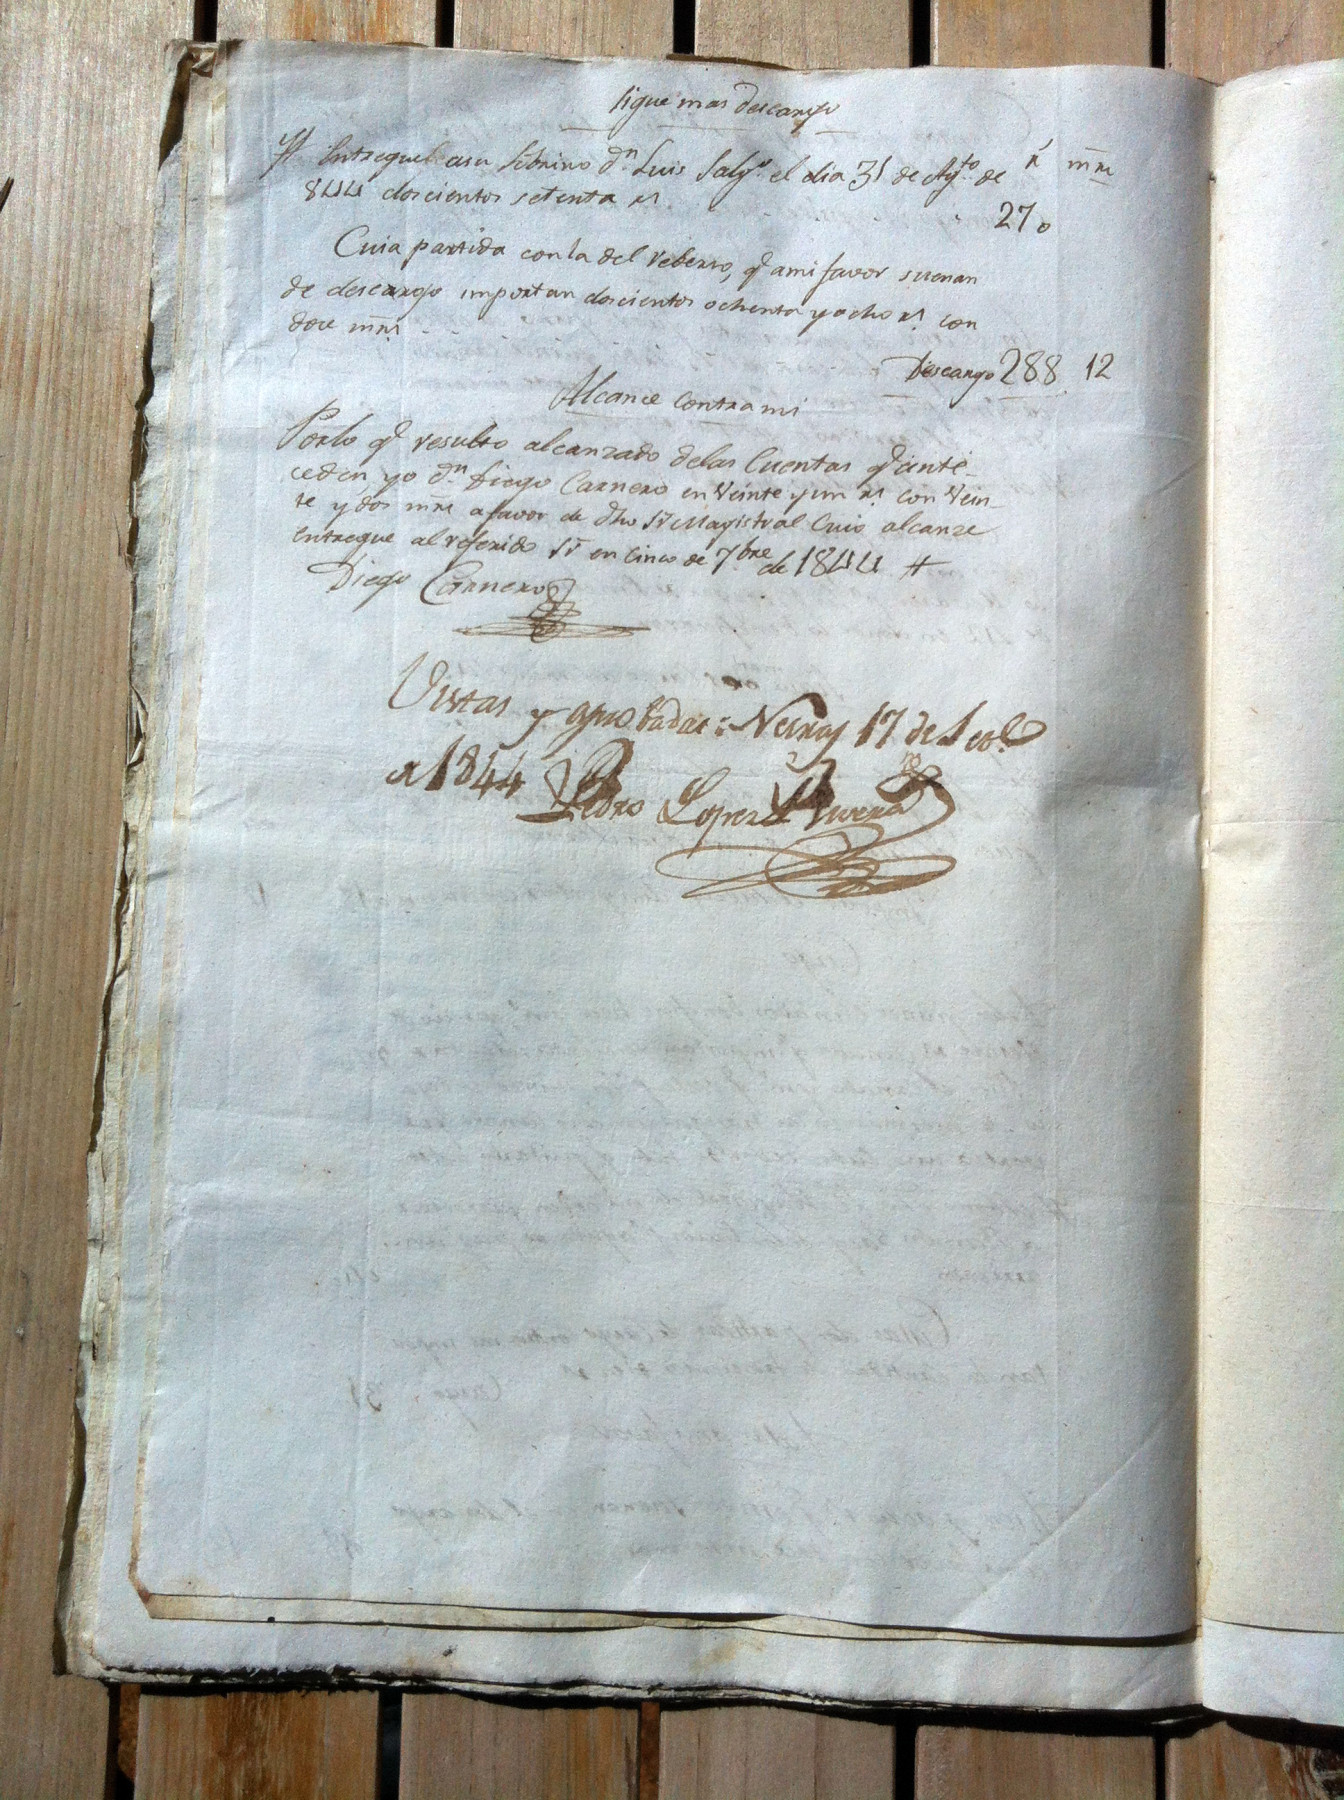 Sigue mas descargo
rˢ mrs
Yt Entregue a su Sobrino Dⁿ Luis Salgᵒ el dia 31 de Agᵗᵒ de
844 doscientos setenta rˢ 270
Cuia partida con la del reberso, q̄ a mi favor suenan
de descargo importan doscientos ochenta y ocho rˢ con
doce mrˢ
Descargo 288 12
Alcance contra mi
Por lo q̄ resulto alcanzado de las Cuentas q̄ ante-
ceden, yo Dⁿ Diego Carnero en Veinte y un rˢ con Vein-
te y dos mrs a favor de dho Sʳ Magistral Cuio alcanze
entregue al referido Sʳ en cinco de 7bre de 1844 #
Diego Carnero
Vistas y aprobadas: Neiras 17 de
1844
Pedro Lopez Rivera